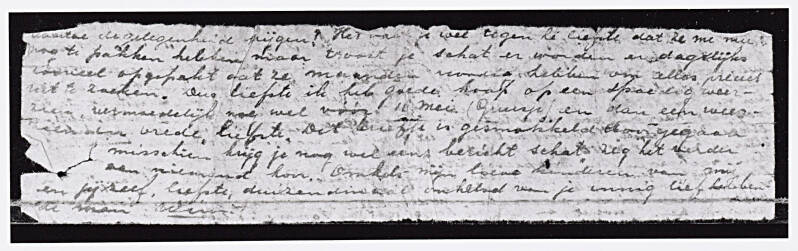 de gelegenheid krijgen? Het val je wel tegen hè liefste dat ze me nu
nog te pakken hebben, maar troost je schat er worden er dagelijks
zooveel opgepakt dat ze maanden noodig hebben om alles precies
uit te zoeken. Dus liefste ik heb goede hoop op een spoedig weer-
zien, vermoedelijk nog wel vóór 10 Mei (Truusje) en dan een weer-
zien in vrede, liefste. Dit briefje is gesmokkeld
misschien krijg je nog wel eens bericht schat, zeg het verder
aan niemand hoor. Omhels mijn lieve kinderen van mij
en jijzelf, liefste, duizendmaal omhelsd van je innig liefhebbende
man Wim